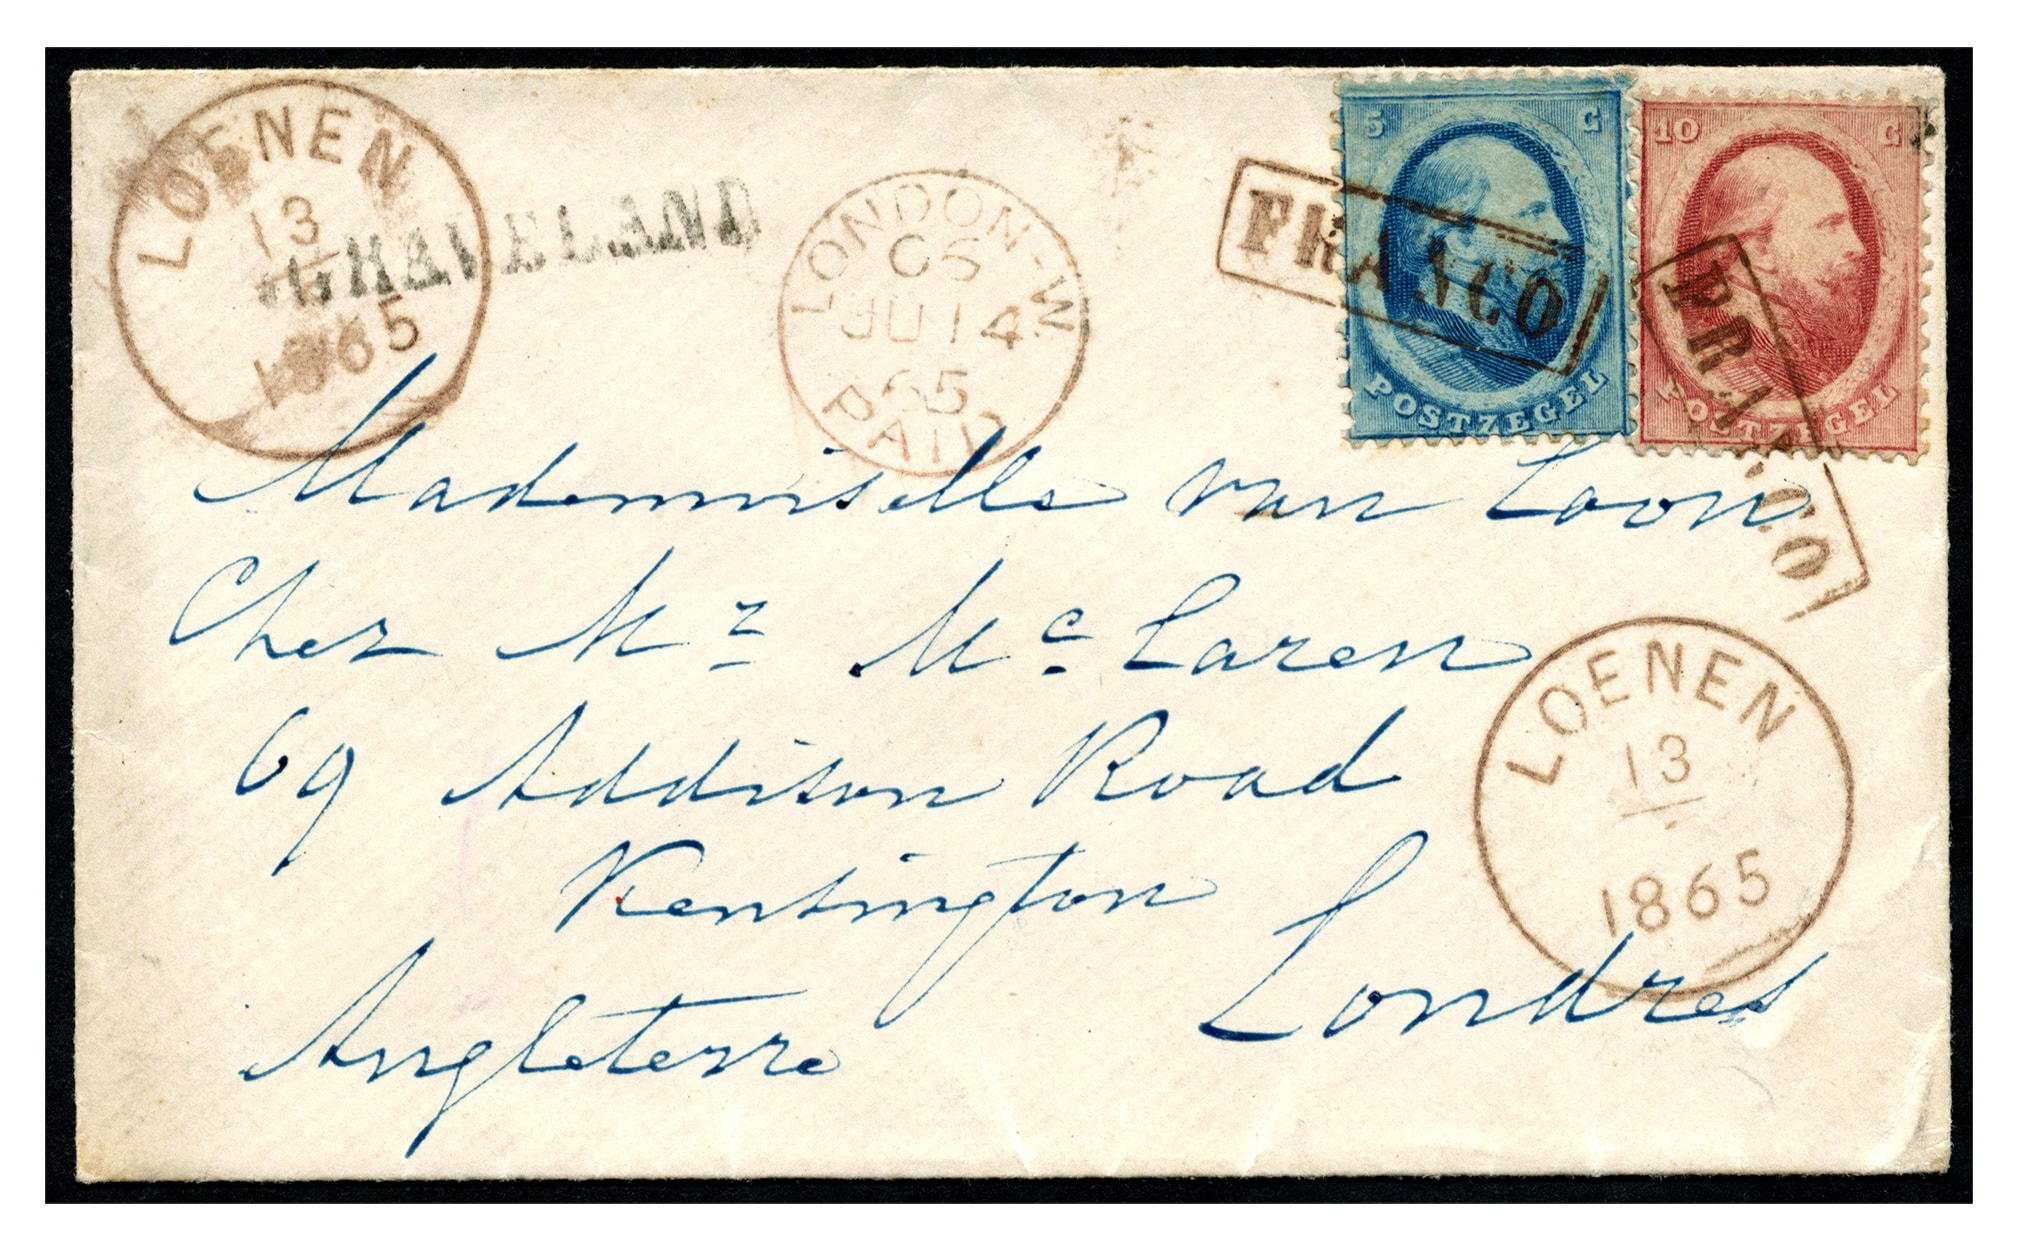 LOENEN
13
1865
'sGRAVELAND
LONDON-W.
C6
JU 14
65
PAID
5 C
POSTZEGEL
10 C
POSTZEGEL
FRANCO
FRANCO
Mademoiselle van Loon
Chez Mr Mc Laren
69 Addison Road
Kensington
Londres
Angleterre
LOENEN
13
1865